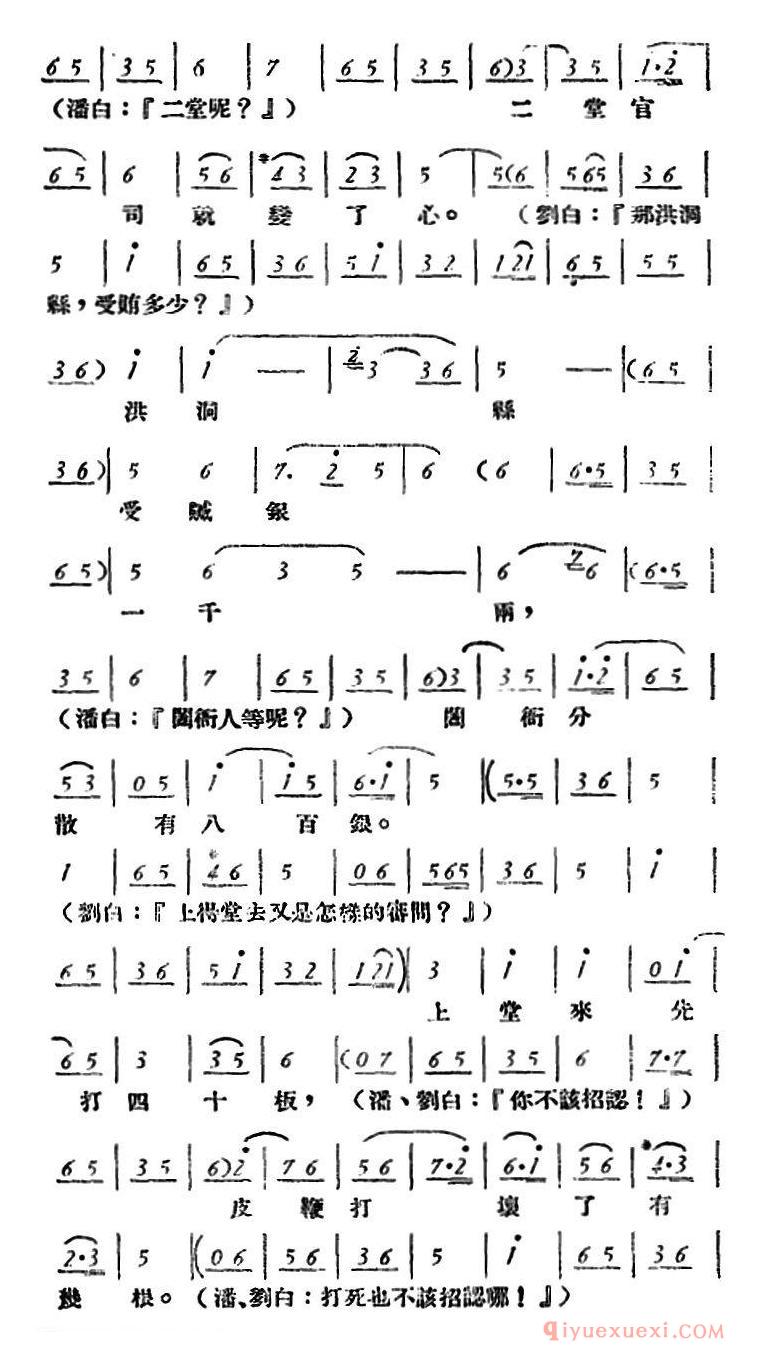 6 5 | 3 5 | 6 | 7 | 6 5 | 3 5 | 6)3 | 3 5 | i·2 |
（潘白：『二堂呢？』） 二 堂 官
6 5 | 6 | 5 6 | #4 3 | 2 3 | 5 | 5(6 | 5 6 5 | 3 6 |
司 就 變 了 心。 （劉白：『那洪洞
5 | i | 6 5 | 3 6 | 5 i | 3 2 | 1 2 1 | 6 5 | 5 5 |
縣，受賄多少？』）
3 6) i | i — | 2 3 3 6 | 5 — |(6 5 |
洪 洞 縣
3 6)| 5 6 | 7. 2 5 | 6 (6 | 6·5 | 3 5 |
受 贓 銀
6 5)| 5 6 3 5 — | 6 7 6 |(6·5 |
一 千 兩，
3 5 | 6 | 7 | 6 5 | 3 5 | 6)3 | 3 5 | i·2 | 6 5 |
（潘白：『闔衙人等呢？』） 闔 衙 分
5 3 | 0 5 | i | i 5 | 6·i | 5 |(5·5 | 3 6 | 5 |
散 有 八 百 銀。
1 | 6 5 | #4 6 | 5 | 0 6 | 5 6 5 | 3 6 | 5 | i |
（劉白：『上得堂去又是怎樣的審問？』）
6 5 | 3 6 | 5 i | 3 2 | 1 2 1)| 3 | i | i | 0 i |
上 堂 來 先
6 5 | 3 | 3 5 | 6 |(0 7 | 6 5 | 3 5 | 6 | 7·7 |
打 四 十 板，（潘、劉白：『你不該招認！』）
6 5 | 3 5 | 6)2 | 7 6 | 5 6 | 7·2 | 6·i | 5 6 | #4·3 |
皮 鞭 打 壞 了 有
2·3 | 5 |(0 6 | 5 6 | 3 6 | 5 | i | 6 5 | 3 6 |
幾 根。（潘、劉白：打死也不該招認哪！』）
qiyuexuexi.com